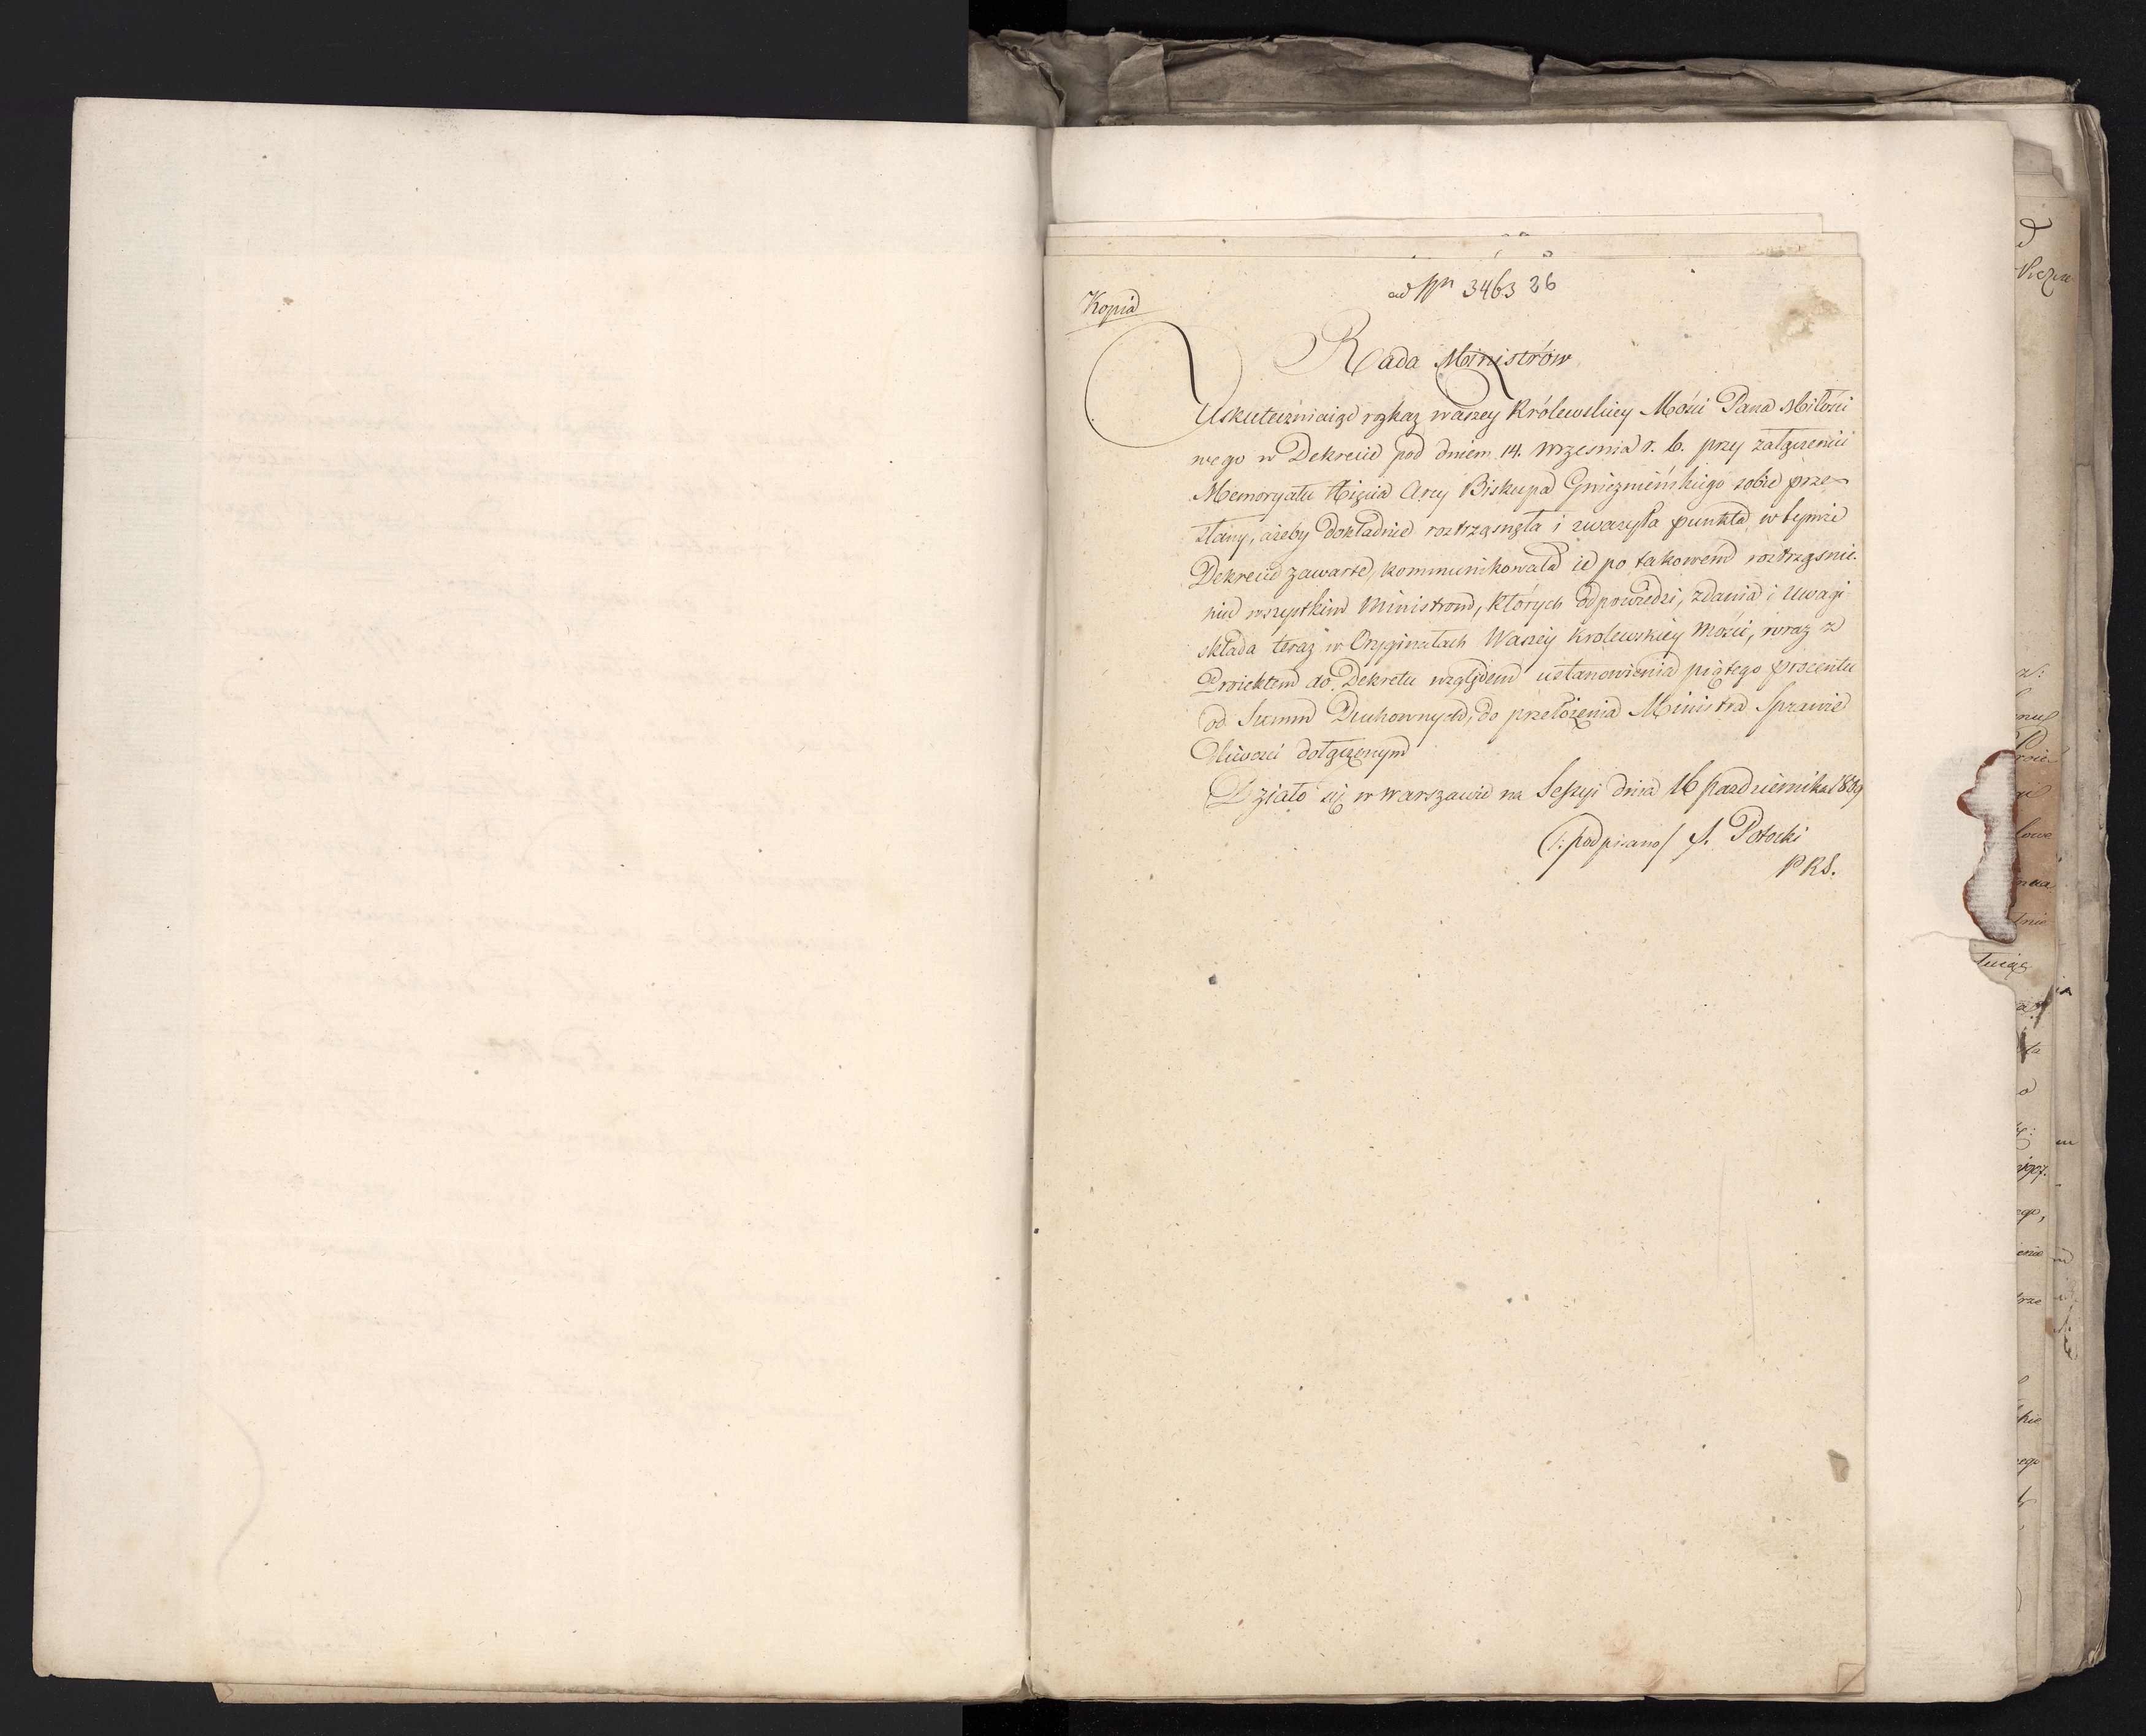 ad № 3463 26
Kopia
Rada Ministrów
Uskuteczniaiąc rozkaz waszey Królewskiey Mości Pana Miłości
wego w Dekrecie pod dniem 14. Września r. b. przy załączeniu
Memoryału Xięcia Arcy Biskupa Gnieznieńskiego sobie prze=
słany, ażeby dokładnie roztrząsnęła i zważyła punkta w tymże
Dekrecie zawarte, kommunikowała ie po takowem roztrząśnie=
niu wszystkim Ministrom, których odpowiedzi, zdania i uwagi
składa teraz w Oryginałach Waszey Krolewskiey Mości, wraz z
Proiektem do Dekretu względem ustanowienia piątego procentu
od Summ Duchownych, do przełożenia Ministra Sprawie
dliwości dołączonym
Działo się w Warszawie na Sessyi dnia 16 Pazdziernika 1809
/:podpisano/ S. Potocki
PRS.